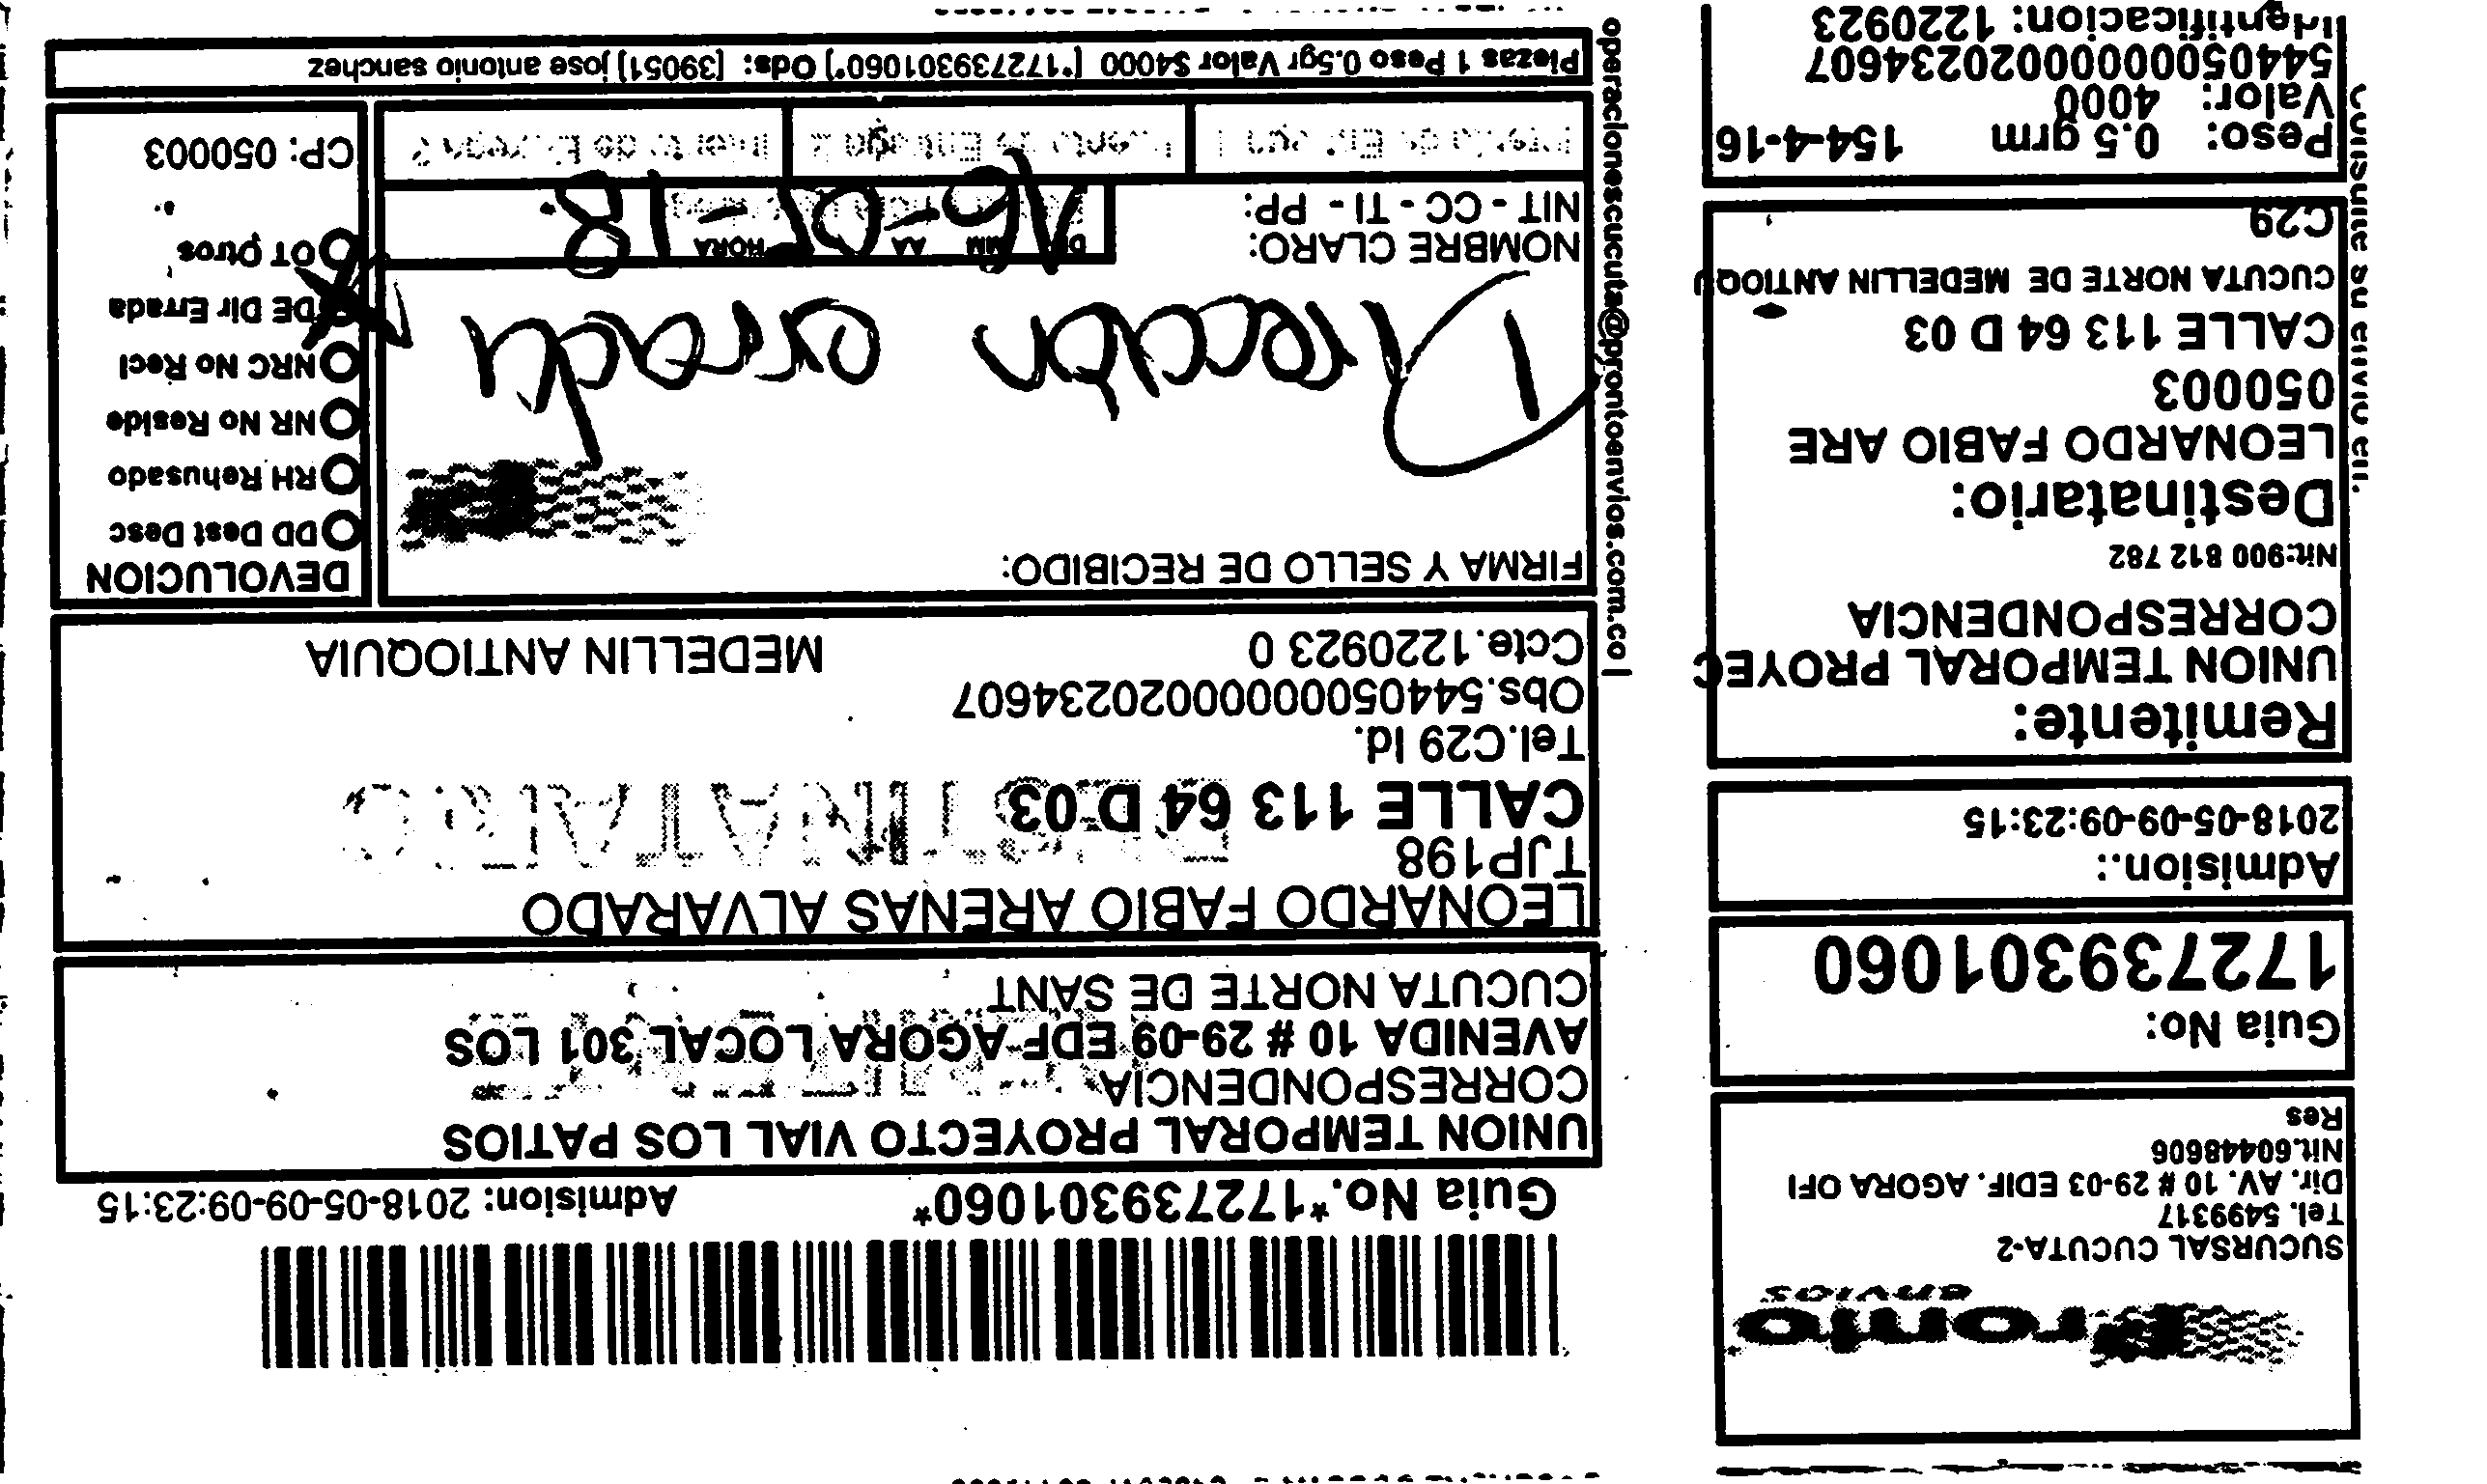 Pronto
envios
SUCURSAL CUCUTA-2
Tel. 5499317
Dir. AV. 10 # 29-03 EDIF. AGORA OFI
Nit.60448606
Res
Guia No:
172739301060
Admision.:
2018-05-09-09:23:15
Remitente:
UNION TEMPORAL PROYEC
CORRESPONDENCIA
Nit:900 812 782
Destinatario:
LEONARDO FABIO ARE
050003
CALLE 113 64 D 03
CUCUTA NORTE DE MEDELLIN ANTIOQU
C29
Peso: 0.5 grm 154-4-16
Valor: 4000
5440500000020234607
Identificacion: 1220923
Consulte su envio en:
Guia No.*172739301060* Admision: 2018-05-09-09:23:15
UNION TEMPORAL PROYECTO VIAL LOS PATIOS
CORRESPONDENCIA
AVENIDA 10 # 29-09 EDF AGORA LOCAL 301 LOS
CUCUTA NORTE DE SANT
LEONARDO FABIO ARENAS ALVARADO
TJP198
CALLE 113 64 D 03
DESTINATARIO
Tel.C29 Id.
Obs.5440500000020234607
Ccte.1220923 0 MEDELLIN ANTIOQUIA
operacionescucuta@prontoenvios.com.co |
FIRMA Y SELLO DE RECIBIDO:
Direccion errada
NOMBRE CLARO:
NIT - CC - TI - PP:
DD MM AA HORA
16-05-18
Intento de Entrega 1 Intento de Entrega 2 Intento de Entrega 3
DEVOLUCION
DD Dest Desc
RH Rehusado
NR No Reside
NRC No Recl
DE Dir Errada
OT Otros
CP: 050003
Piezas 1 Peso 0.5gr Valor $4000 [*172739301060*] Ods: [39051] jose antonio sanchez